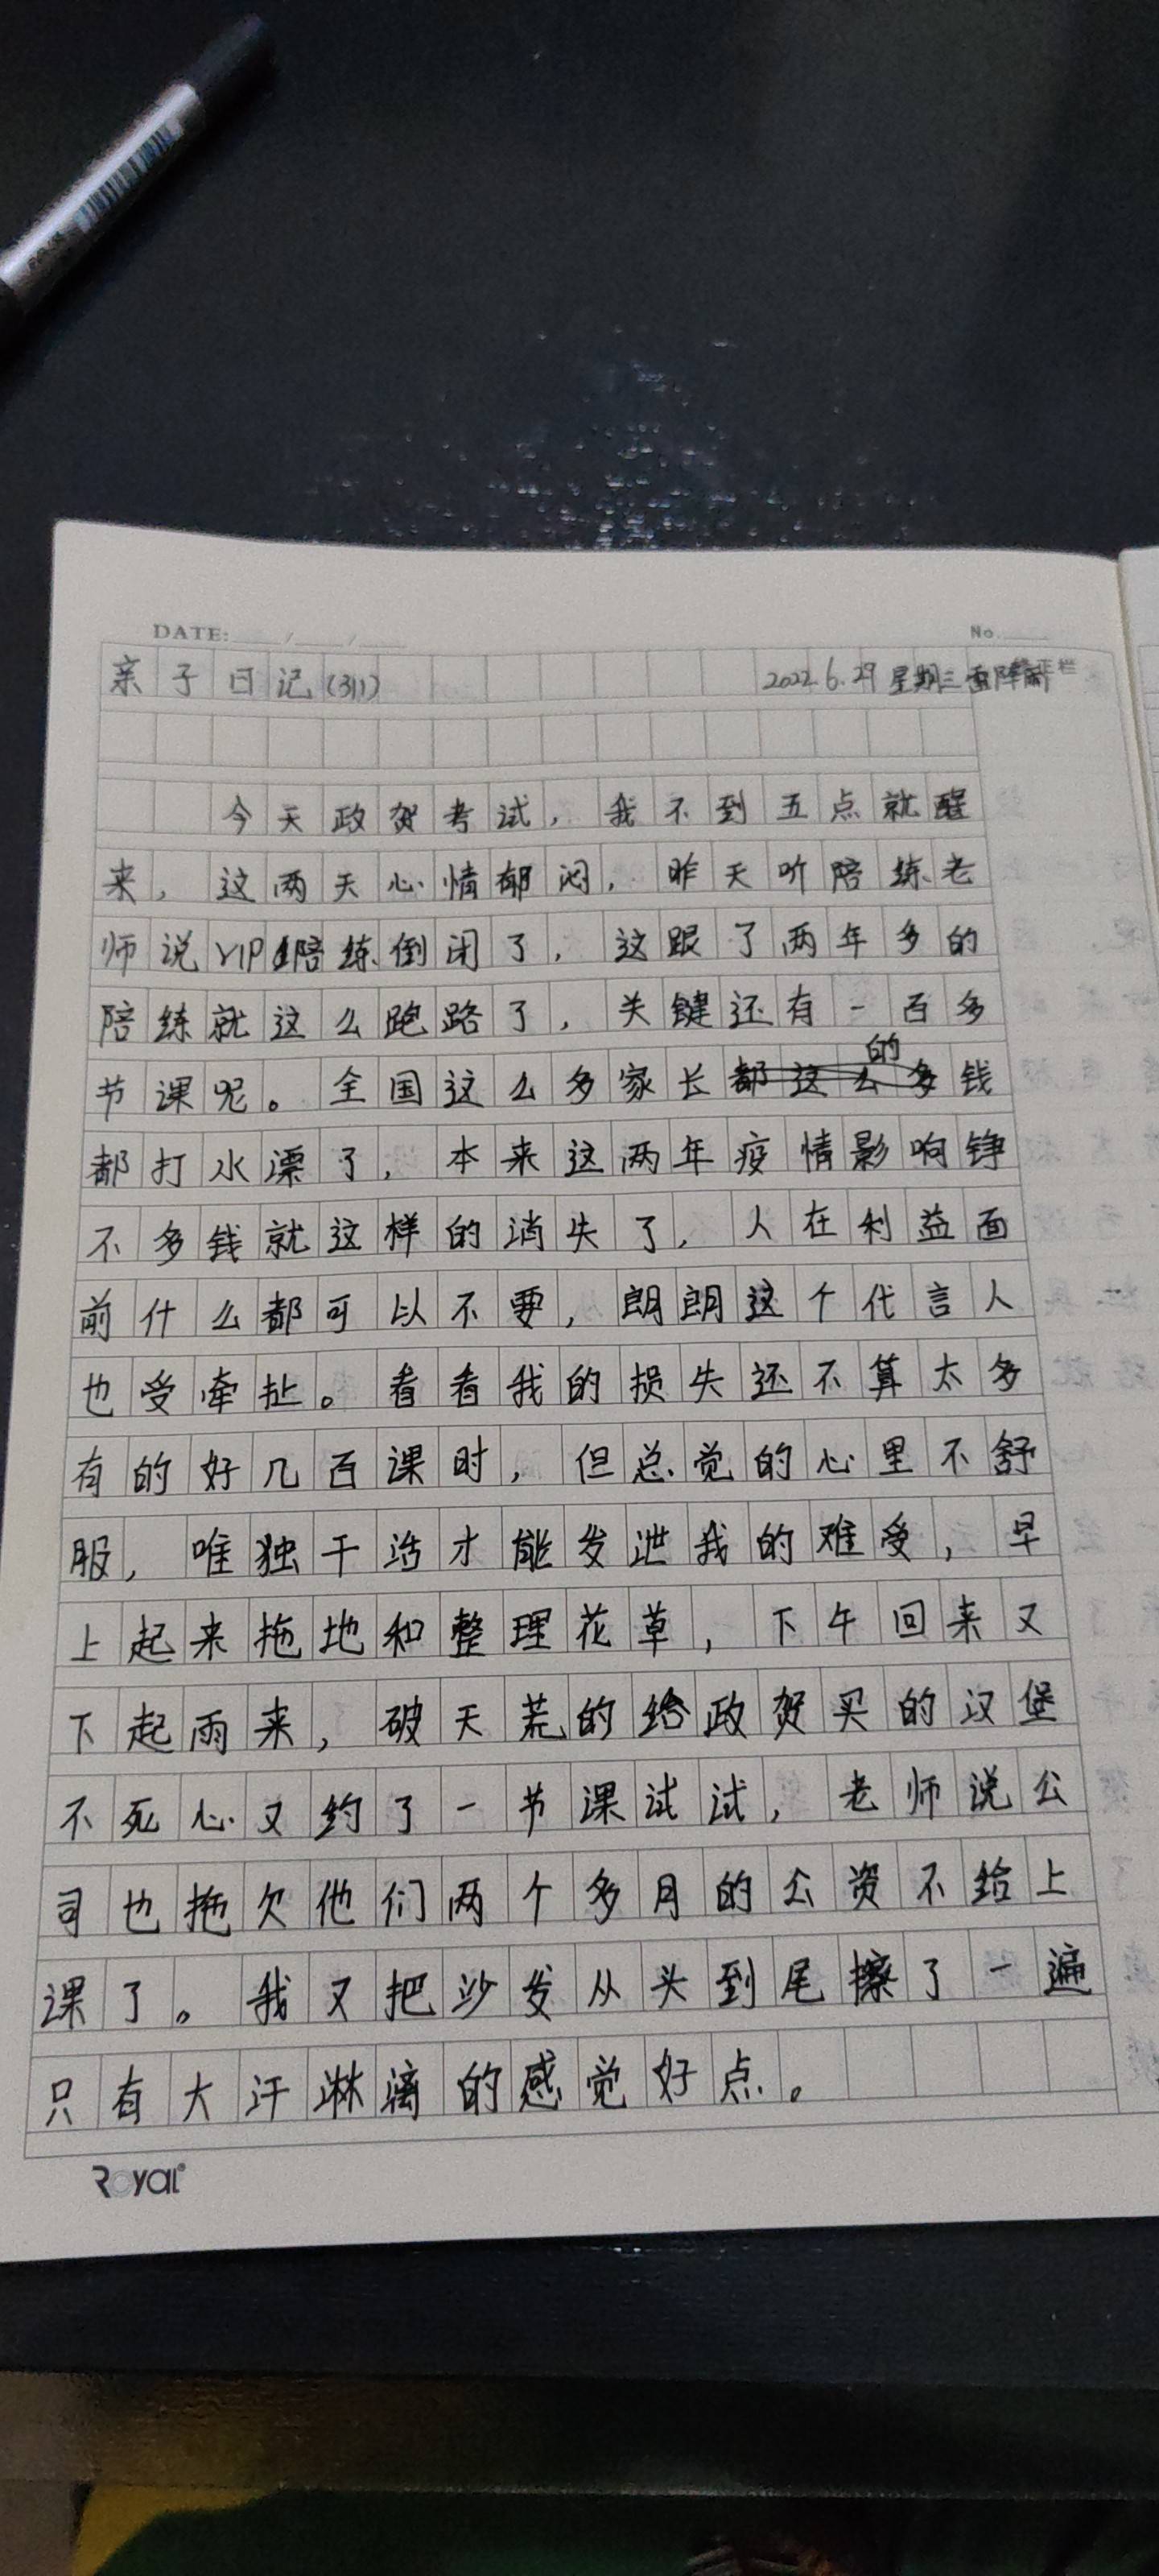 DATE: / /
No.
亲子日记(311) 2022.6.29 星期三 雷阵雨
今天政贺考试，我不到五点就醒
来，这两天心情郁闷，昨天听陪练老
师说VIP陪练倒闭了，这跟了两年多的
陪练就这么跑路了，关键还有一百多
节课呢。全国这么多家长的钱
都打水漂了，本来这两年疫情影响铮
不多钱就这样的消失了，人在利益面
前什么都可以不要，朗朗这个代言人
也受牵扯。看看我的损失还不算太多
有的好几百课时，但总觉的心里不舒
服，唯独干活才能发泄我的难受，早
上起来拖地和整理花草，下午回来又
下起雨来，破天荒的给政贺买的汉堡
不死心又约了一节课试试，老师说公
司也拖欠他们两个多月的公资不给上
课了。我又把沙发从头到尾擦了一遍
只有大汗淋漓的感觉好点。
Royal